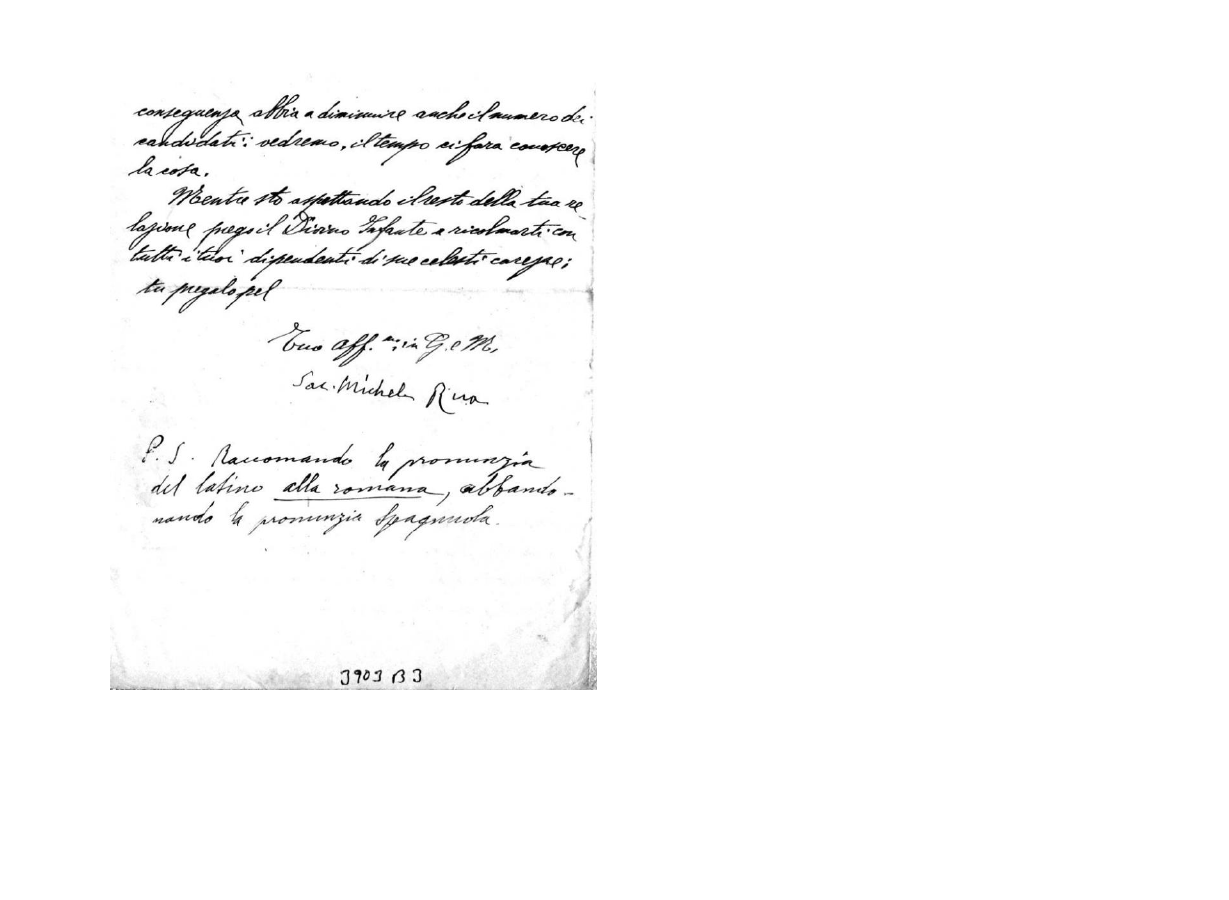 conseguenza abbia a diminuire anche il numero dei
candidati: vedremo, il tempo ci farà conoscere
la cosa.
Mentre sto aspettando il resto della tua re-
lazione prego il Divino Infante a ricolmarti con
tutti i tuoi dipendenti di sue celesti carezze;
tu pregalo pel
Tuo aff.mo in G. e M.
Sac. Michele Rua
P. S. Raccomando la pronunzia
del latino alla romana, abbando-
nando la pronunzia Spagnuola.
3903 B 3